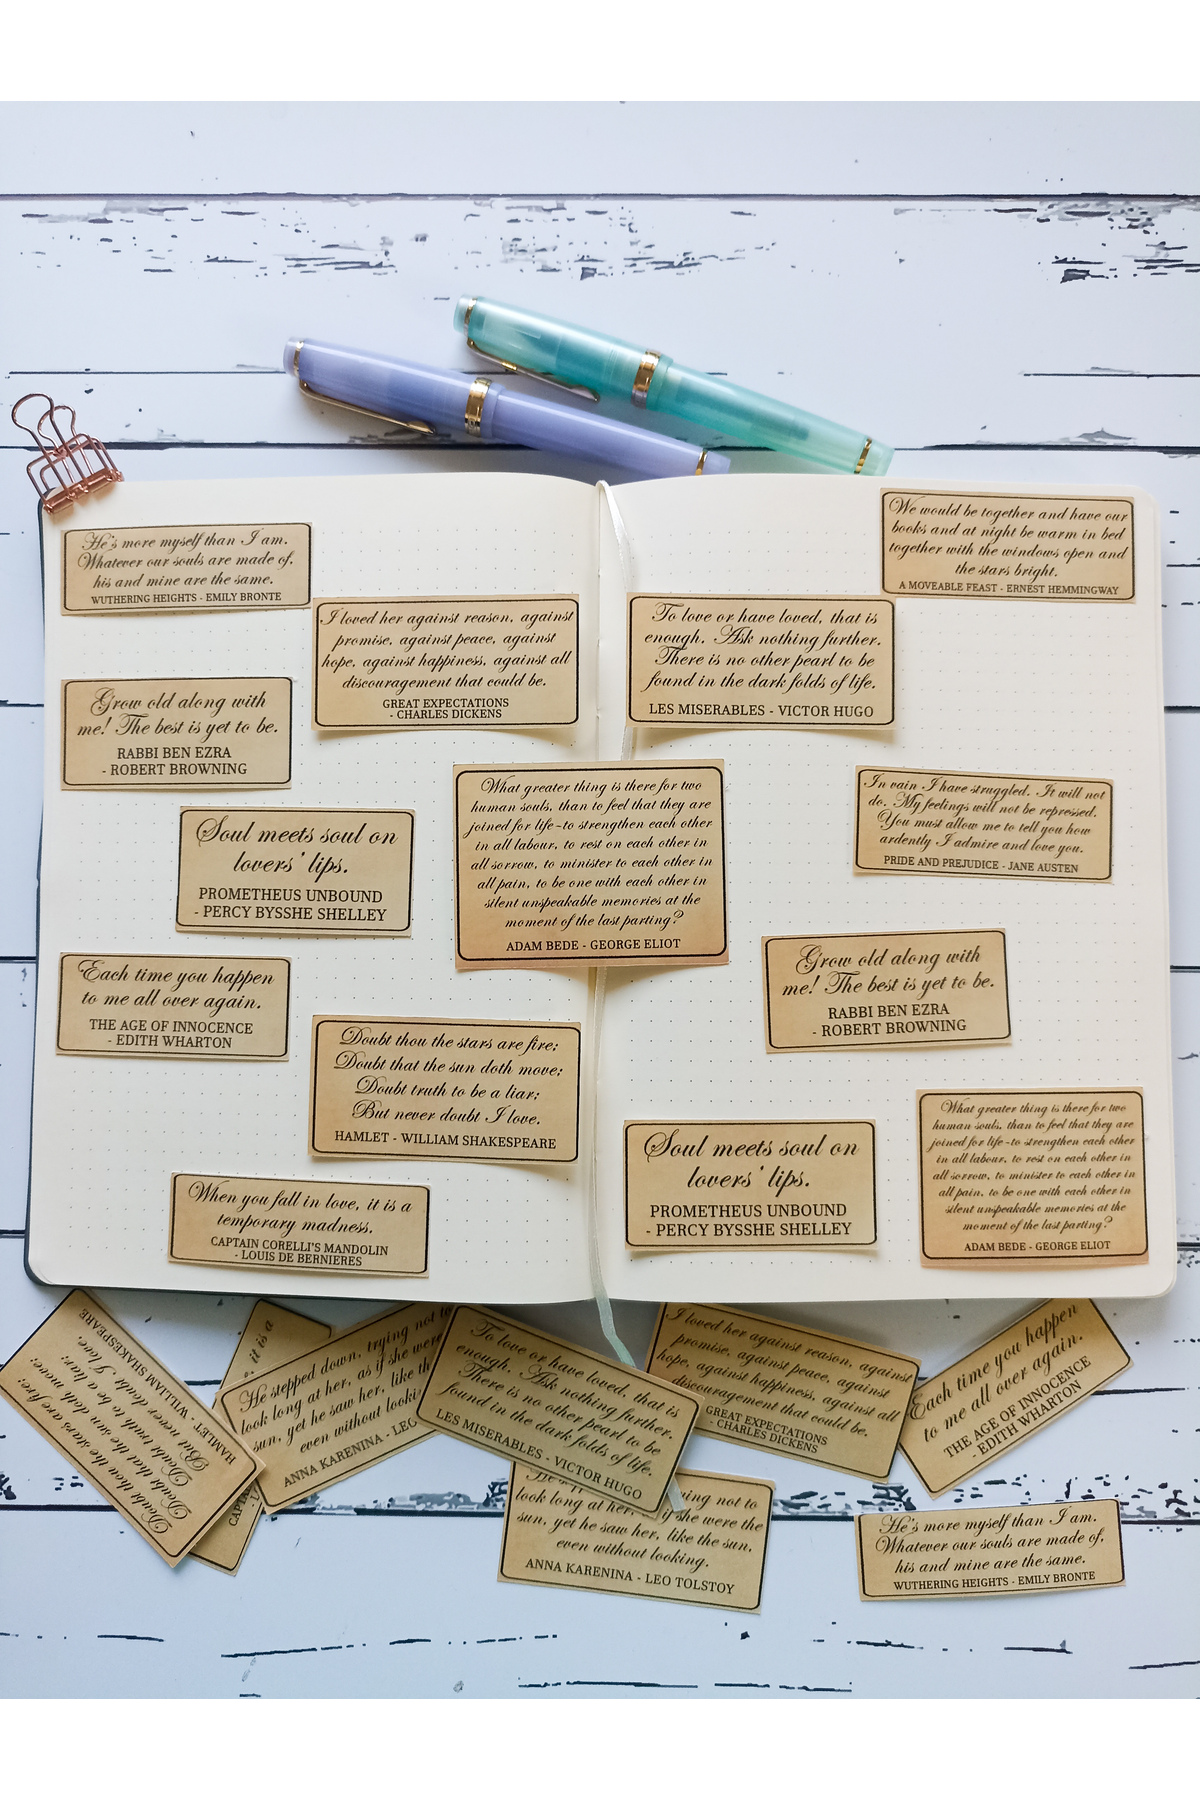 He's more myself than I am.
Whatever our souls are made of,
his and mine are the same.
WUTHERING HEIGHTS - EMILY BRONTE
I loved her against reason, against
promise, against peace, against
hope, against happiness, against all
discouragement that could be.
GREAT EXPECTATIONS
- CHARLES DICKENS
Grow old along with
me! The best is yet to be.
RABBI BEN EZRA
- ROBERT BROWNING
Soul meets soul on
lovers' lips.
PROMETHEUS UNBOUND
- PERCY BYSSHE SHELLEY
Each time you happen
to me all over again.
THE AGE OF INNOCENCE
- EDITH WHARTON
Doubt thou the stars are fire;
Doubt that the sun doth move;
Doubt truth to be a liar;
But never doubt I love.
HAMLET - WILLIAM SHAKESPEARE
When you fall in love, it is a
temporary madness.
CAPTAIN CORELLI'S MANDOLIN
- LOUIS DE BERNIERES
What greater thing is there for two
human souls, than to feel that they are
joined for life-to strengthen each other
in all labour, to rest on each other in
all sorrow, to minister to each other in
all pain, to be one with each other in
silent unspeakable memories at the
moment of the last parting?
ADAM BEDE - GEORGE ELIOT
We would be together and have our
books and at night be warm in bed
together with the windows open and
the stars bright.
A MOVEABLE FEAST - ERNEST HEMMINGWAY
To love or have loved, that is
enough. Ask nothing further.
There is no other pearl to be
found in the dark folds of life.
LES MISERABLES - VICTOR HUGO
In vain I have struggled. It will not
do. My feelings will not be repressed.
You must allow me to tell you how
ardently I admire and love you.
PRIDE AND PREJUDICE - JANE AUSTEN
Grow old along with
me! The best is yet to be.
RABBI BEN EZRA
- ROBERT BROWNING
Soul meets soul on
lovers' lips.
PROMETHEUS UNBOUND
- PERCY BYSSHE SHELLEY
What greater thing is there for two
human souls, than to feel that they are
joined for life-to strengthen each other
in all labour, to rest on each other in
all sorrow, to minister to each other in
all pain, to be one with each other in
silent unspeakable memories at the
moment of the last parting?
ADAM BEDE - GEORGE ELIOT
Doubt thou the stars are fire;
Doubt that the sun doth move;
Doubt truth to be a liar;
But never doubt I love.
HAMLET - WILLIAM SHAKESPEARE
it is a
He stepped down, trying not to
look long at her, as if she were
sun, yet he saw her, like th
even without looki
ANNA KARENINA - LEO
To love or have loved, that is
enough. Ask nothing further.
There is no other pearl to be
found in the dark folds of life.
LES MISERABLES - VICTOR HUGO
I loved her against reason, against
promise, against peace, against
hope, against happiness, against all
discouragement that could be.
GREAT EXPECTATIONS
- CHARLES DICKENS
Each time you happen
to me all over again.
THE AGE OF INNOCENCE
- EDITH WHARTON
ying not to
look long at her, if she were the
sun, yet he saw her, like the sun,
even without looking.
ANNA KARENINA - LEO TOLSTOY
He's more myself than I am.
Whatever our souls are made of,
his and mine are the same.
WUTHERING HEIGHTS - EMILY BRONTE